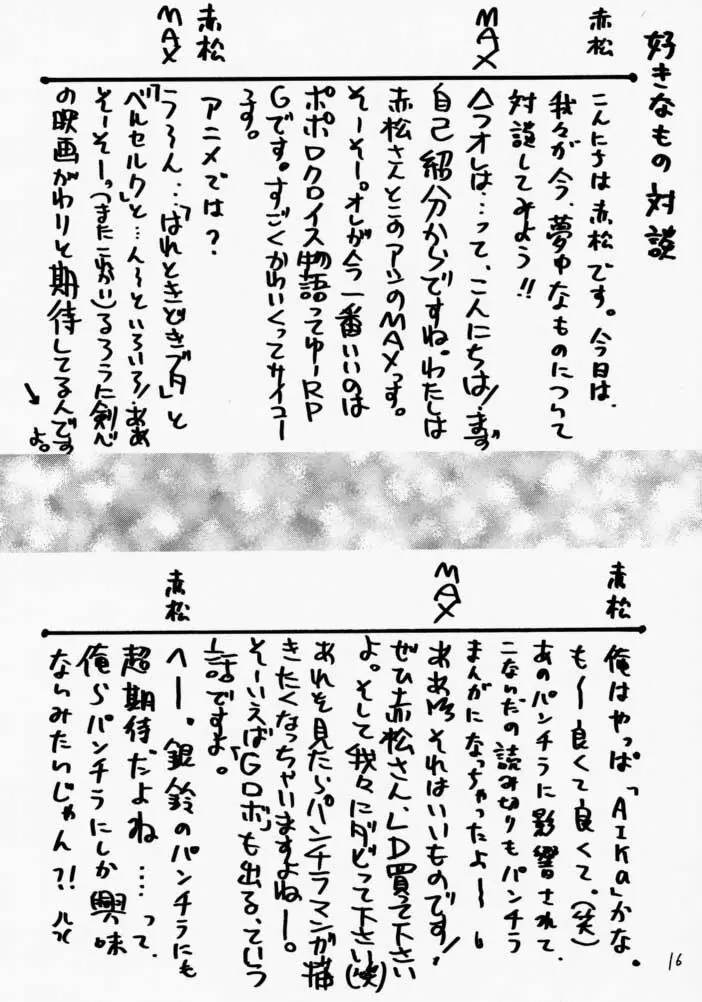 好きなもの対談
赤松
こんにちは赤松です。今日は、
我々が今、夢中なものについて
対談してみよう!!
MAX
へっオレは…って、こんにちは!まず
自己紹介からですね。わたしは
赤松さんとこのアシのMAXっす。
そーそー。オレが今一番いいのは
ポポロクロイス物語ってゆーRP
Gです。すごくかわいくってサイコー
です。
赤松
アニメでは?
MAX
う~ん…「はれときどきブタ」と
「ベルセルク」と…ん~といろいろ!ああ
そーそーっ(またこれかい)るろうに剣心
の映画がわりと期待してるんです
よ。
赤松
俺はやっぱ「AIKa」かな。
も~良くて良くて。(笑)
あのパンチラに影響されて、
こないだの読み切りもパンチラ
まんがになっちゃったよ~
MAX
ああ、それはいいものです!
ぜひ赤松さん、LD買って下さい
よ。そして我々にダビって下さい(笑)
あれを見たらパンチラマンガ描
きたくなっちゃいますよねー。
そーいえば「Gロボ」も出る、ていう
話ですよ。
赤松
へー。銀鈴のパンチラにも
超期待だよね……って、
俺らパンチラにしか興味
ないみたいじゃん?!
16